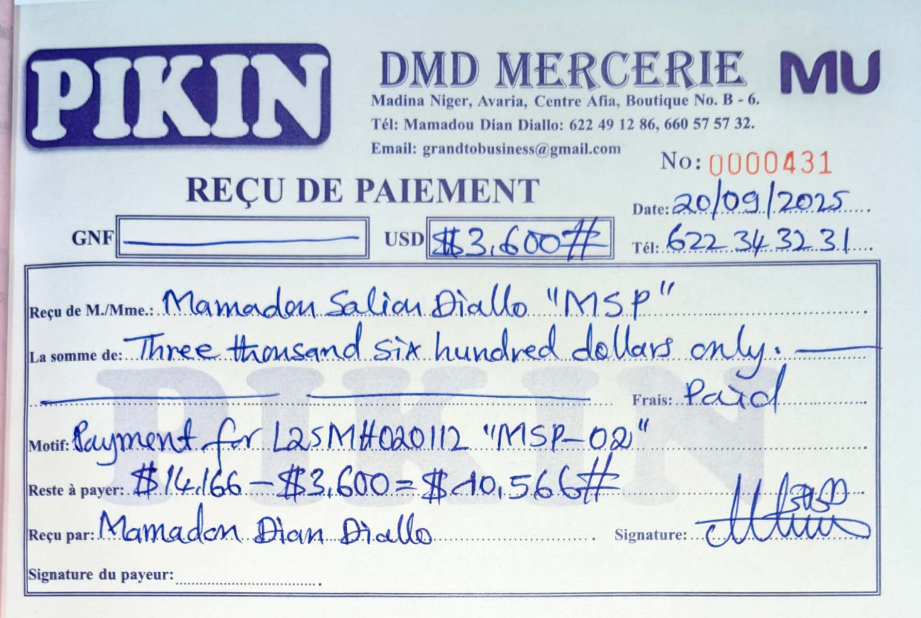 PIKIN
DMD MERCERIE MU
Madina Niger, Avaria, Centre Afia, Boutique No. B - 6.
Tél: Mamadou Dian Diallo: 622 49 12 86, 660 57 57 32.
Email: grandtobusiness@gmail.com
No: 0000431
REÇU DE PAIEMENT
Date: 20/09/2025
GNF USD $3,600#
Tél: 622 34 32 31
Reçu de M./Mme.: Mamadou Saliou Diallo "MSP"
La somme de: Three thousand six hundred dollars only.
Frais: Paid
Motif: Payment for L25M#020112 "MSP-02"
Reste à payer: $14,166 - $3,600 = $10,566#
Reçu par: Mamadou Dian Diallo Signature:
Signature du payeur:
PIKIN